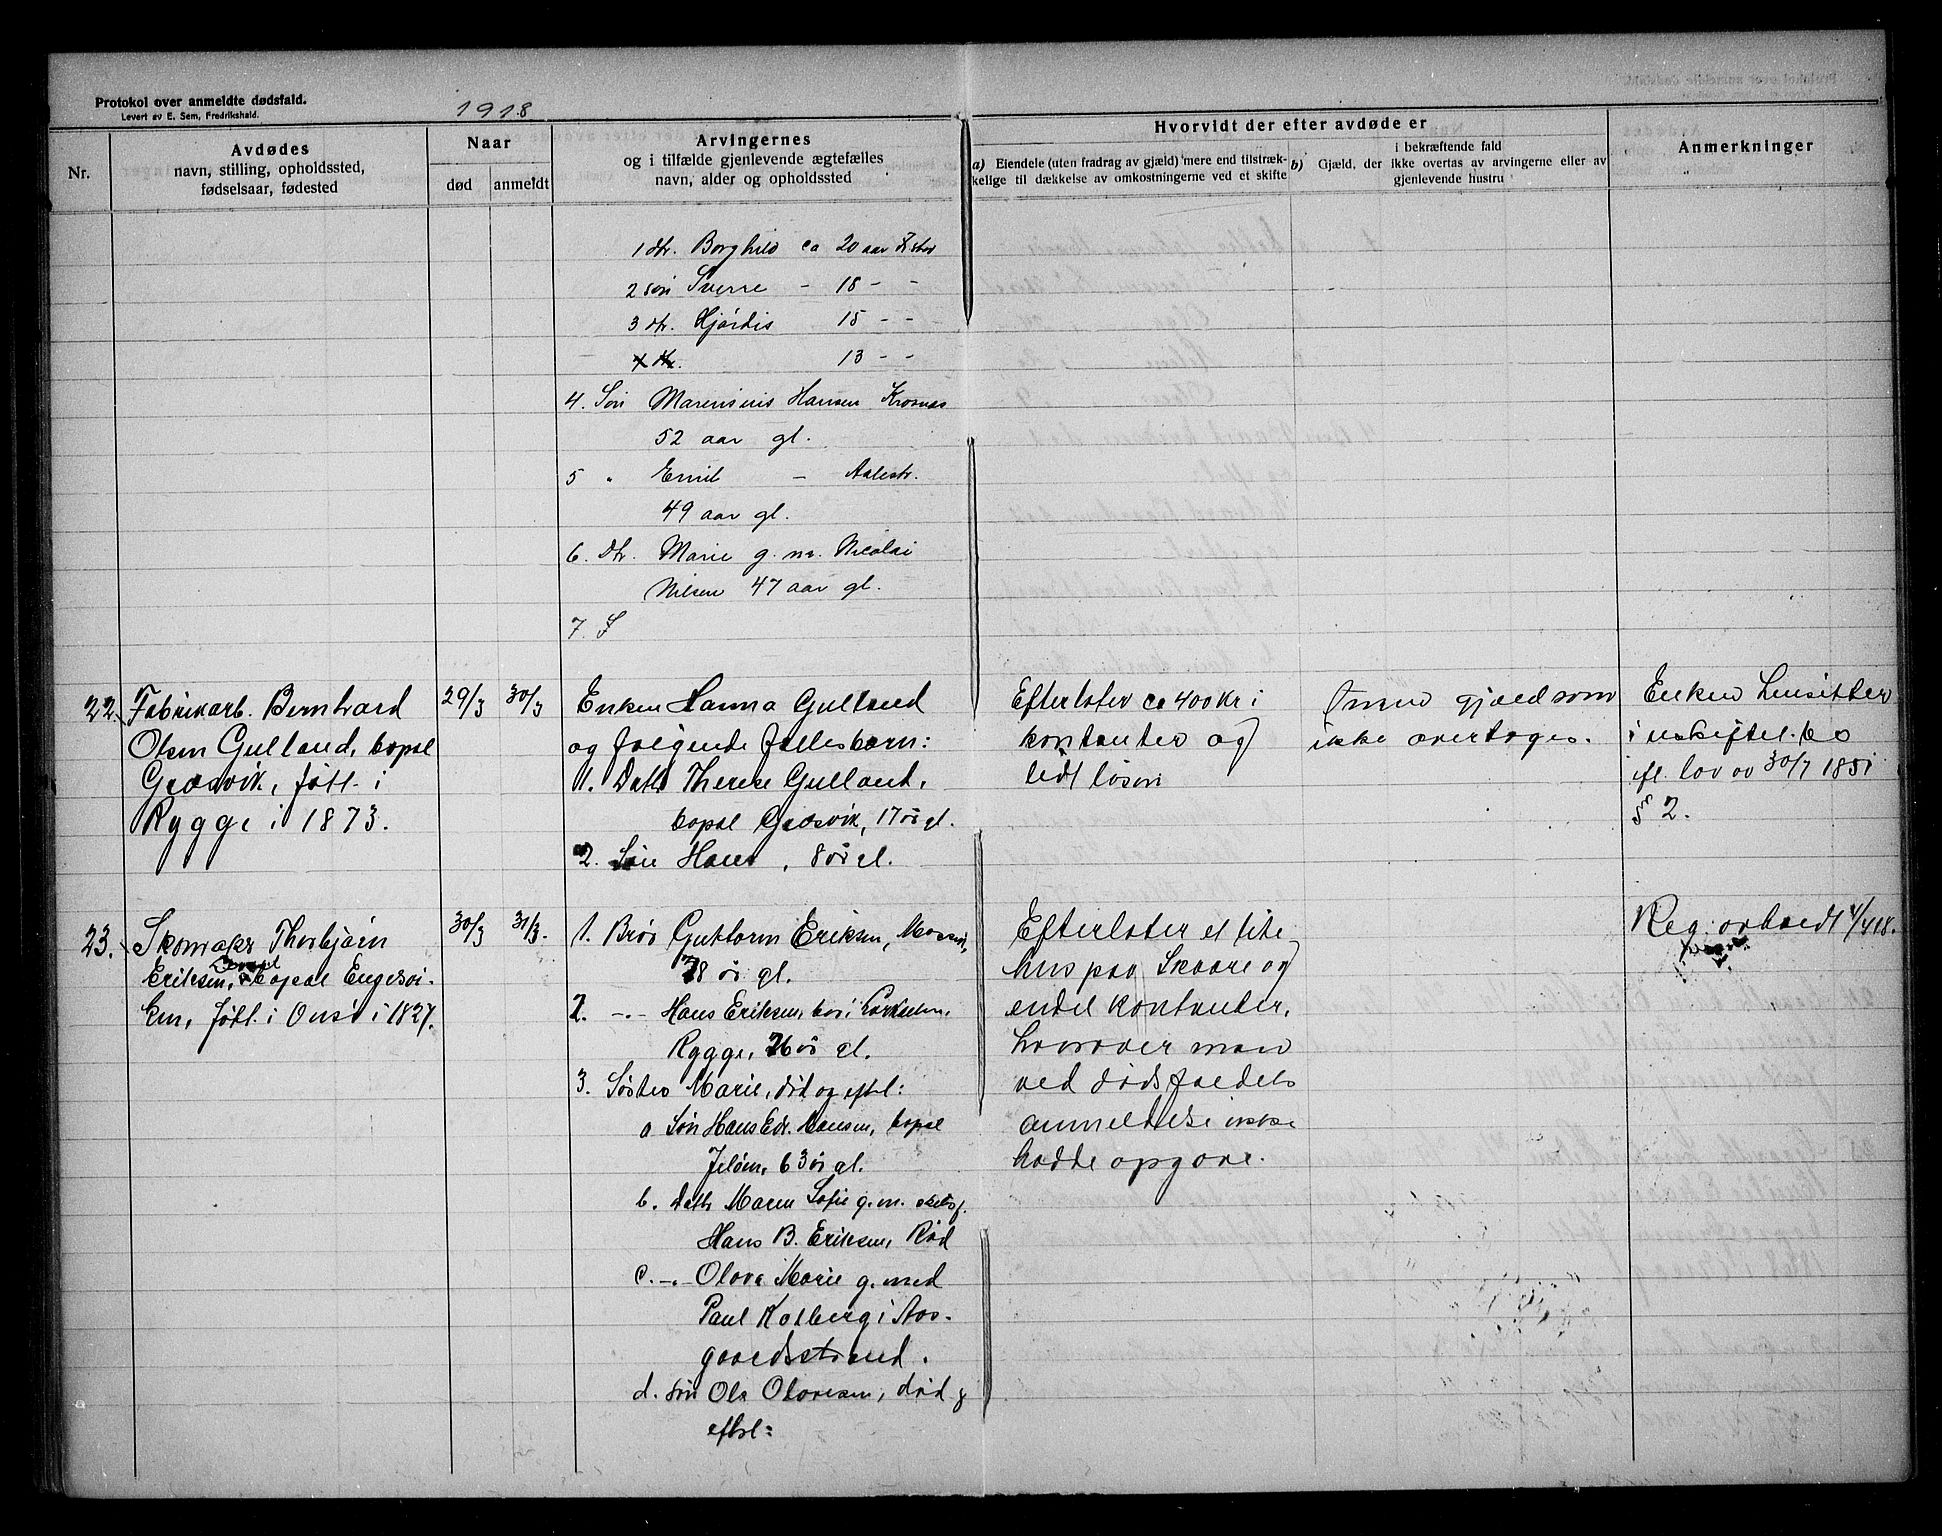 Protokol over anmeldte dødsfald.
Levert av E. Sem, Fredrikshald.
1918
Nr.
Avdødes
navn, stilling, opholdssted,
fødselsaar, fødested
Naar
død
anmeldt
Arvingernes
og i tilfælde gjenlevende ægtefælles
navn, alder og opholdssted
Hvorvidt der efter avdøde er
a) Eiendele (uten fradrag av gjæld) mere end tilstræk-
kelige til dækkelse av omkostningerne ved et skifte
i bekræftende fald
b) Gjæld, der ikke overtas av arvingerne eller av
gjenlevende hustru
Anmerkninger
1 dtr. Borghild ca 20 aar
2 søn Sverre - 18 - -
3 dtr. Hjørdis 15 - -
13 - -
4. Søn Marensius Hansen Krosnes
52 aar gl.
5 " Emil - Aalestr.
49 aar gl.
6. Dtr. Marie g. m. Nicolai
Nilsen 47 aar gl.
7. S
22.
Fabrikarb. Bernhard
Olsen Gulland, bopæl
Græsvik, født i
Rygge i 1873.
29/3
30/3
Enken Hanna Gulland
og følgende fællesbarn:
1. Datr Therese Gulland,
bopæl Græsvik, 17 år gl.
2. Søn Hans, 8 år gl.
Efterlater ca 400 kr i
kontanter og
lidt løsøre
Ingen gjæld som
ikke overtages.
Enken hensitter
i uskiftet bo
efl. lov av 30/7 1851
§ 2.
23.
Skomaker Thorbjørn
Eriksen, bopæl Engelsvi-
ken, født i Onsø i 1827.
30/3
31/3.
1. Bror Guttorm Eriksen, Moss,
78 år gl.
2. -.- Hans Eriksen, bor i
Rygge, 76 år gl.
3. Søster Marie, død og eftrl:
a Søn Hans Edv. Hansen, bopæl
Jeløen, 63 år gl.
b. Datr Maren Sofie g.m.
Hans B. Eriksen, Rød
c. -.- Olava Marie g. med
Paul Kolberg i Aas-
gaardsstrand.
d. søn Ole Olavesen, død &
eftrl:
Efterlater et lite
hus paa Skaare og
endel kontanter,
hvorover man
ved dødsfaldets
anmeldelse ikke
hadde opgave.
Reg. avholdt 4/4 18.